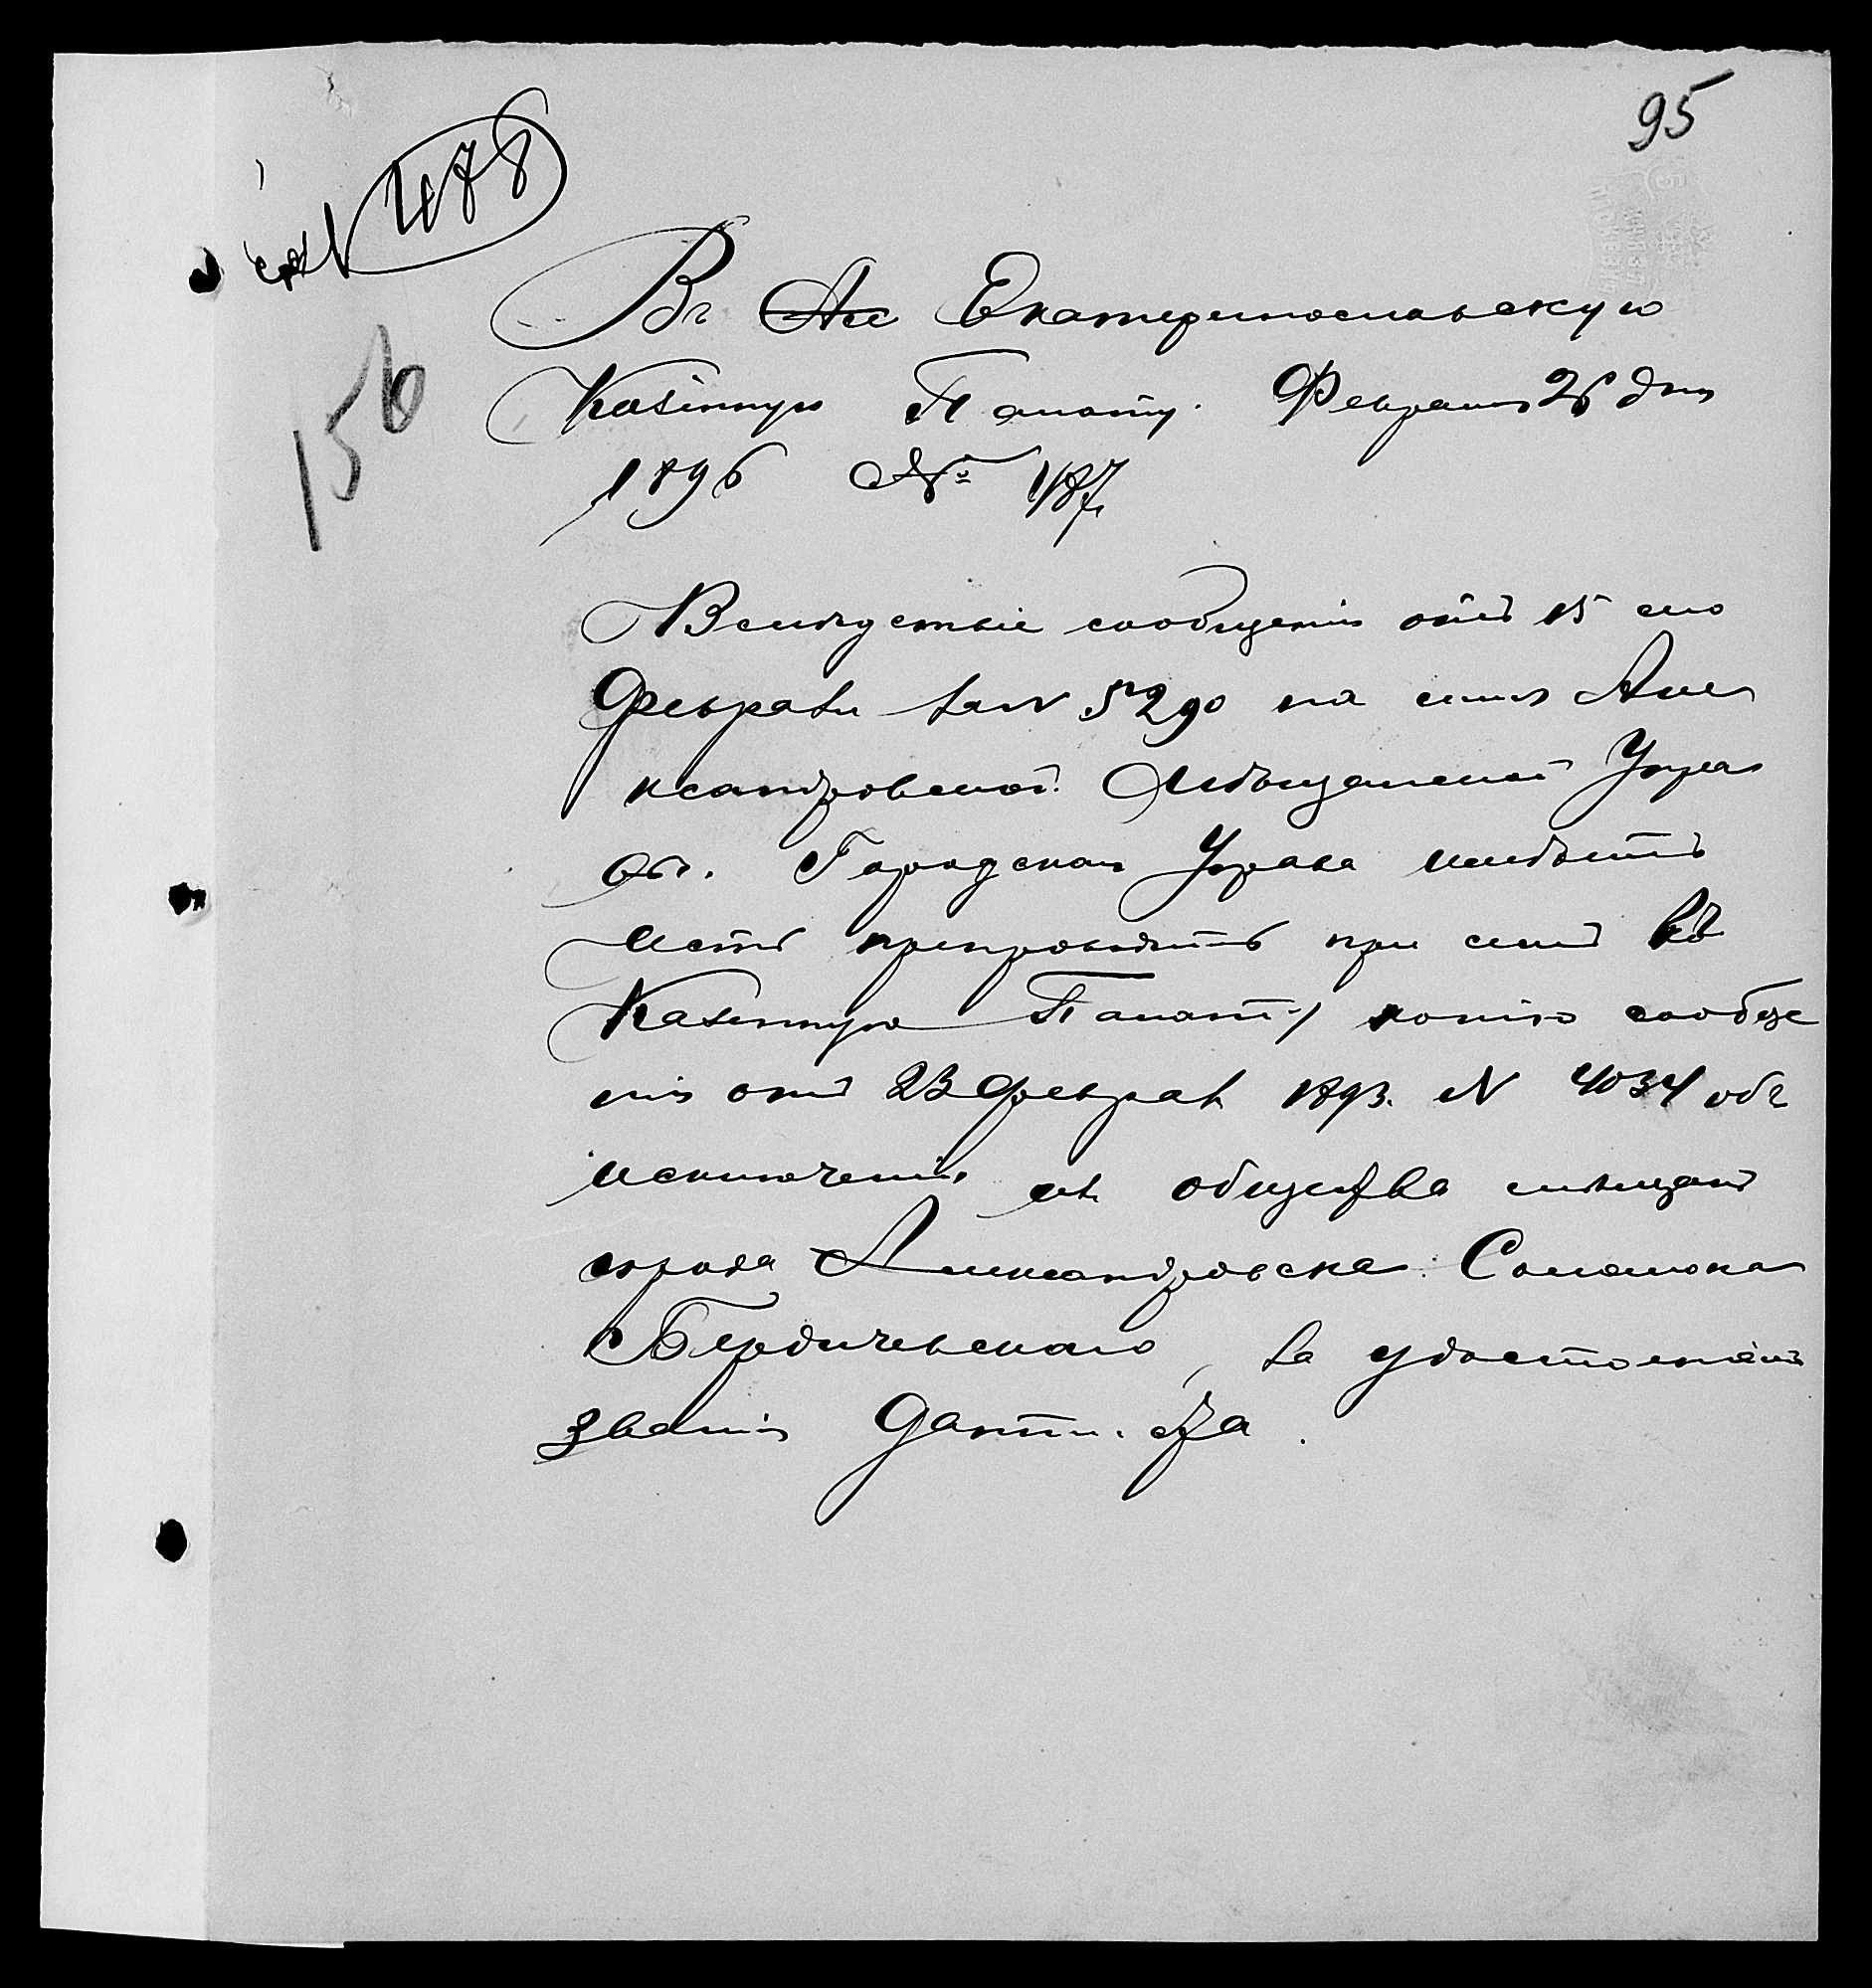 95
478
156
Въ Ал Екатеринославскую
Казенную Палату. Февраля 26 дня
1896 № 487
Вслѣдствіе сообщенія отъ 15 сего
Февраля за N 5290 на имя Але
ксандровской Мѣщанской Упра
вы. Городская Управа имѣетъ
честь препроводить при семъ въ
Казенную Палату копію сообще
нія отъ 23 Феврал 1893. N 4034 объ
исключеніи изъ общества мѣщанъ
города Александровска Соломона
Бердичевскаго, за удостоеніемъ
званія Дантиста.